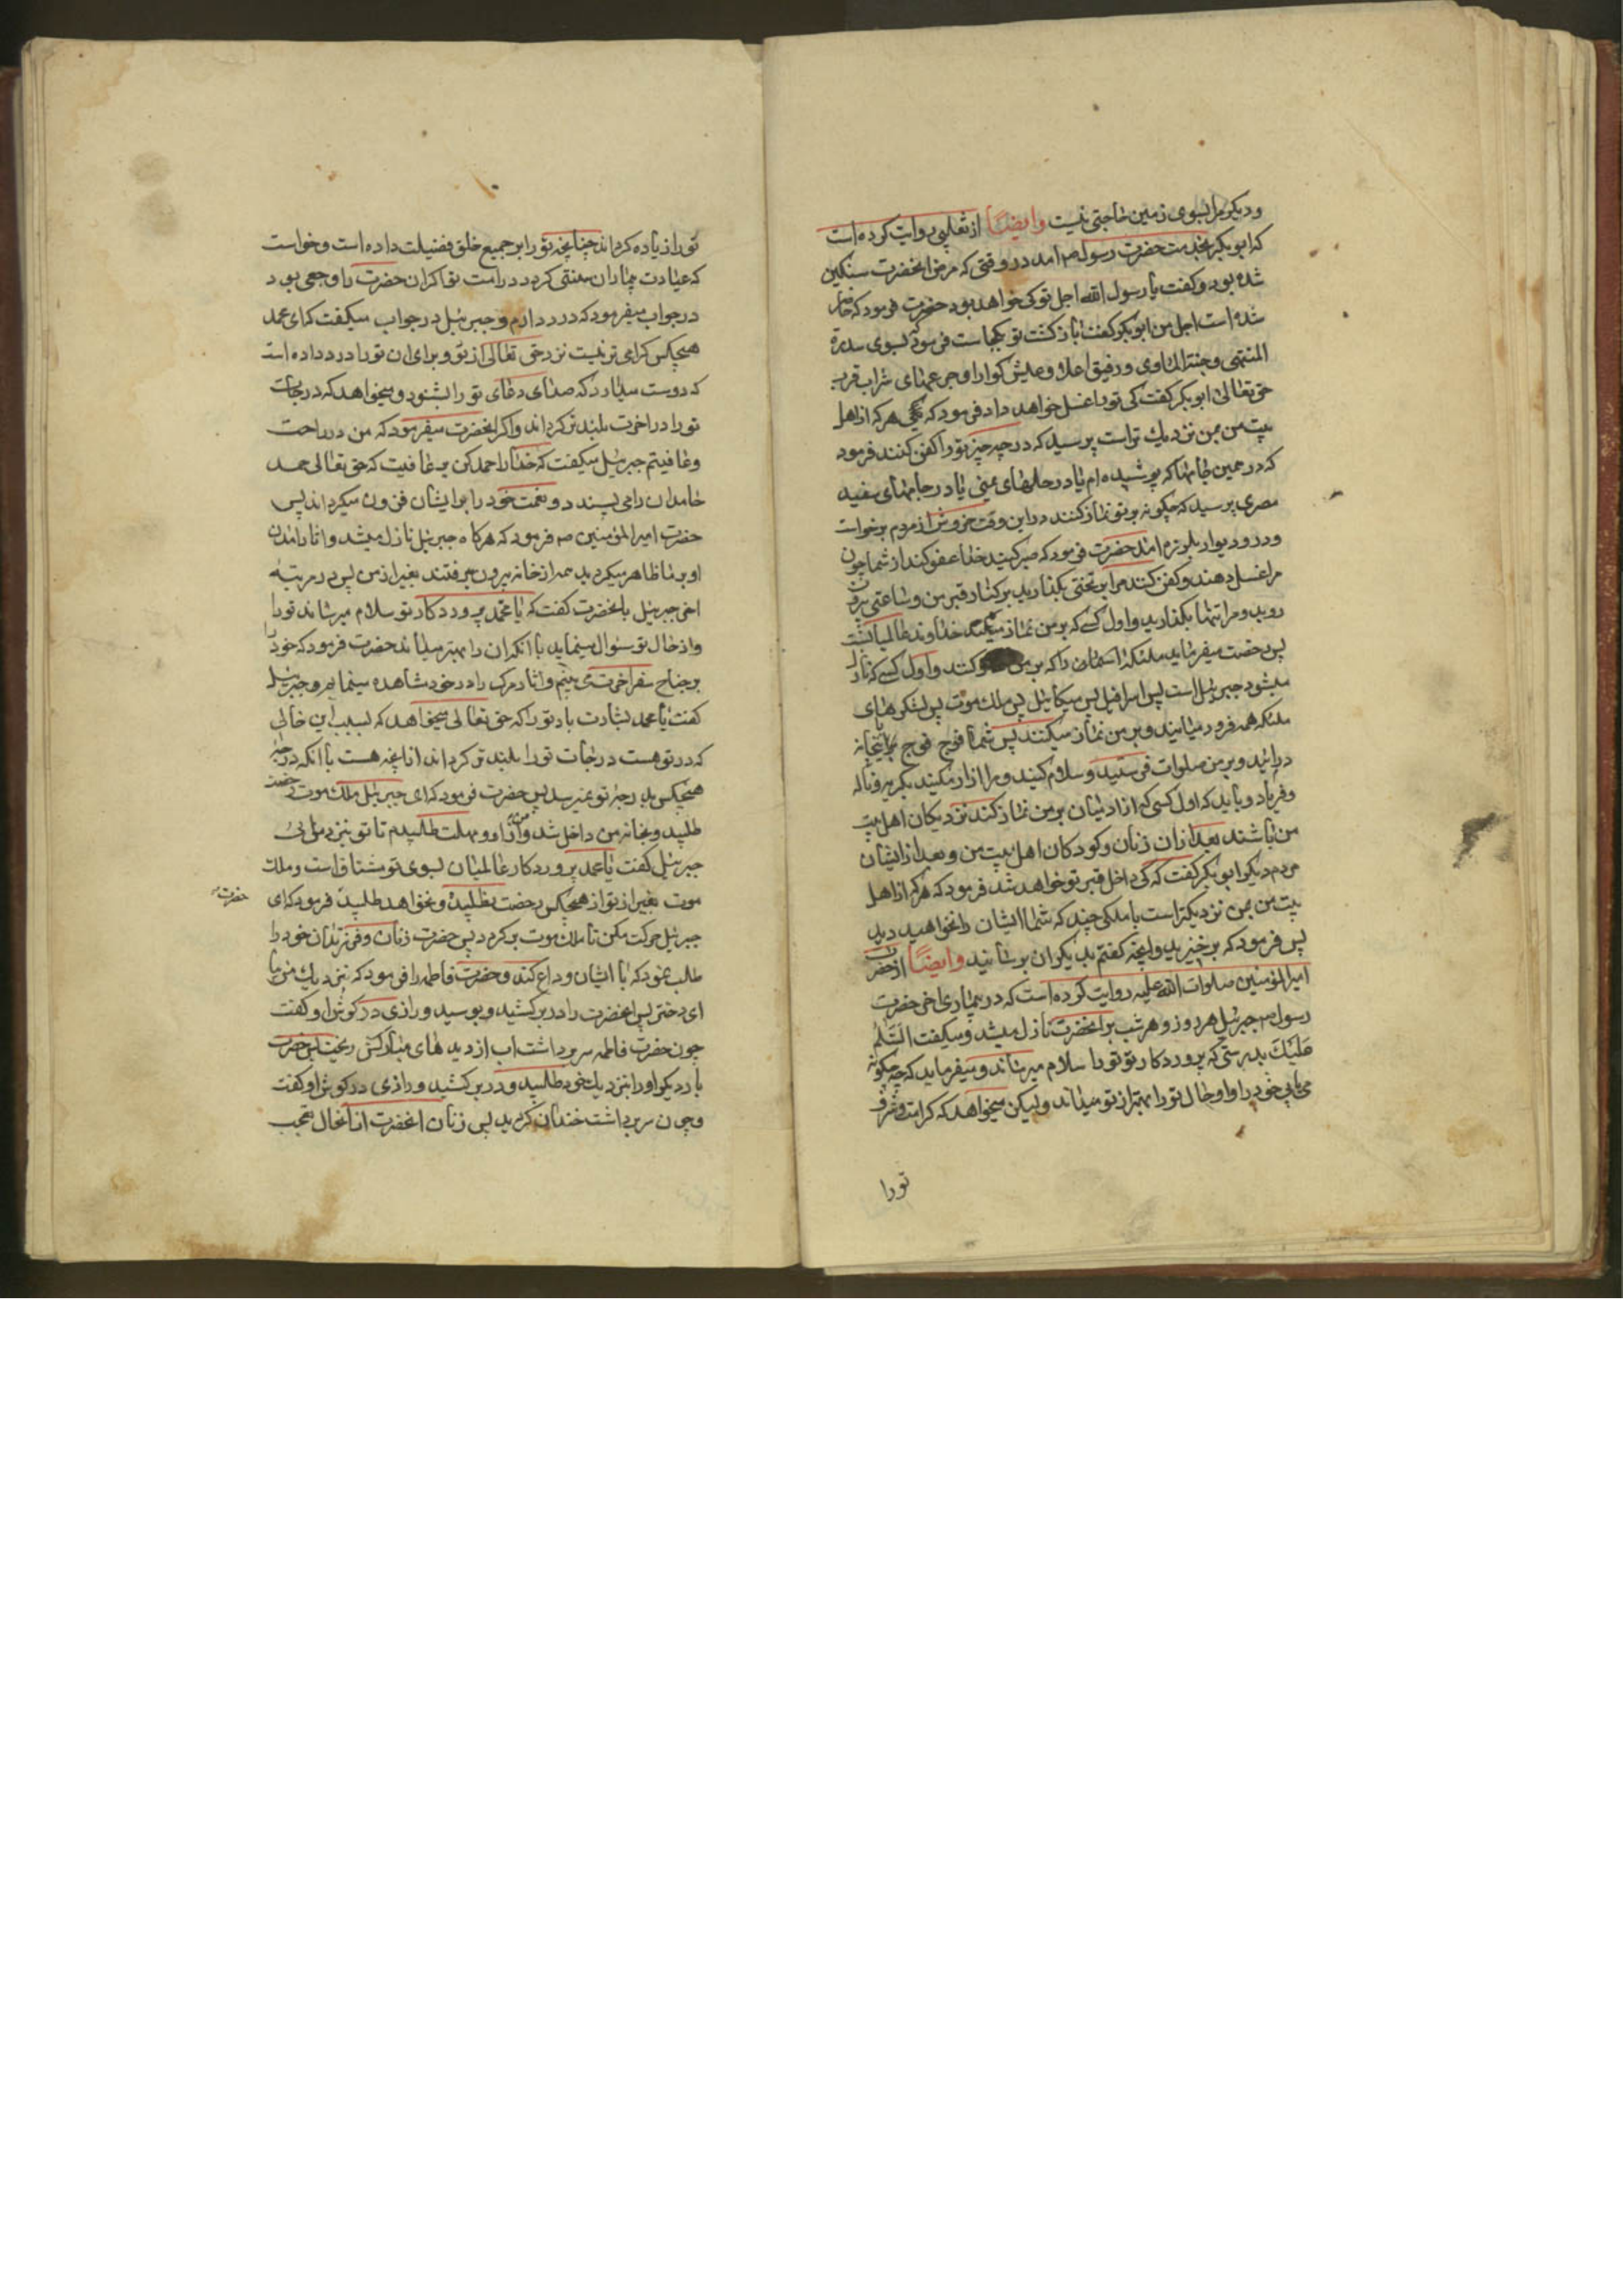 و دیکر مرا بسوی زمین حاجتی نیست وایضًا از ثعلبی روایت کرده است
که ابو بکر بخدمت حضرت رسول ص امد در وقتی که مرض انحضرت سنکین
شده بود و کفت یا رسول الله اجل تو کی خواهد بود حضرت فرمود که حاضر
شده است اجل من ابو بکر کفت باز کشت تو بکجاست فرمود که بسوی سدرة
المنتهی و جنة الماوی و رفیق اعلا و عیش کوارا و جرعهای شراب قرب
حق تعالی ابو بکر کفت کی تورا غسل خواهد داد فرمود که هر که از اهل
بیت من بمن نزدیك تر است پرسید که در چه چیز تورا کفن کنند فرمود
که در همین جامها که پوشیده ام یا در حلهای یمنی یا در جامهای سفید
مصری پرسید که چکونه بر تو نماز کنند در این وقت خروش از مردم برخواست
و در و دیوار بلرزه امد حضرت فرمود که صبر کنید خدا عفو کند از شما چون
مرا غسل دهند و کفن کنند مرا بر تختی بکذارید بر کنار قبر من و ساعتی بیرون
روید و مرا تنها بکذارید و اول کسی که بر من نماز میکند خداوند عالمیانست
پس رخصت میفرماید ملئکه اسمان را که بر من کنند و اول کسی که نازل
میشود جبرئیل است پس اسرافیل پس میکائیل پس ملك موت پس لشکرهای
ملئکه همه فرود میایند و بر من نماز میکنند پس شما فوج فوج باینخانه
درائید و بر من صلوات فرستید و سلام کنید و مرا ازار مکنید بکریه و ناله
و فریاد و باید که اول کسی که از ادمیان بر من نماز کند نزدیکان اهل بیت
من باشند بعد از ان زنان و کودکان اهل بیت من و بعد از ایشان
مردم دیکر ابو بکر کفت که کی داخل قبر تو خواهد شد فرمود که هرکه از اهل
بیت من بمن نزدیکتر است با ملکی چند که شما ایشان را نخواهید دید
پس فرمود که برخیزید و انچه کفتم بدیکران برسانید وایضًا از حضرت
امیرالمؤمنین صلوات الله علیه روایت کرده است که در بیماری اخر حضرت
رسول ص جبرئیل هر روز و هر شب بر انحضرت نازل میشد و میکفت السَّلٰمُ
عَلَیْكَ بدرستی که پروردکار تو تورا سلام میرساند و میفرماید که چه چکونه
می یابی خود را و او حال تورا بهتر از تو میداند ولیکن میخواهد که کرامت و شرف
تورا
تورا زیاده کرداند چنانچه تورا بر جمیع خلق فضیلت داده است و خواست
که عیادت بیماران سنتی کردد در امت تو اکر ان حضرت را وجعی بود
در جواب میفرمود که درد دارم و جبرئیل در جواب میکفت که ای محمد
هیچکس کرامی تر نیست نزد حق تعالی از تو و برای ان تورا درد داده است
که دوست میدارد که صدای دعای تورا بشنود و میخواهد که درجات
تورا در اخرت بلند تر کرداند و اکر انحضرت میفرمود که من در راحت
و عافیتم جبرئیل میکفت که خدا را حمد کن بر عافیت که حق تعالی حمد
حامدان را می پسندد و نعمت خود را بر ایشان فزون میکرداند پس
حضرت امیرالمؤمنین ص فرمود که هرکاه جبرئیل نازل میشد و اثار امدن
او بر ما ظاهر میکردید همه از خانه بیرون میرفتند بغیر از من پس در مرتبهٔ
اخر جبرئیل بانحضرت کفت که یا محمد پروردکار تو سلام میرساند تورا
و از حال تو سئوال مینماید با انکه ان را بهتر میداند حضرت فرمود که خود را
بر جناح سفر اخرت می بینم و اثار مرک را در خود مشاهده مینمایم و جبرئیل
کفت یا محمد بشارت باد تورا که حق تعالی میخواهد که بسبب این حالی
که در تو هست درجات تورا بلند تر کرداند از انچه هست با انکه درجهٔ
هیچکس بدرجهٔ تو نمیرسد پس حضرت فرمود که ای جبرئیل ملك موت رخصت
طلبید و بخانه من داخل شد و از او مهلت طلبیدم تا تو بنزد من آئی
جبرئیل کفت یا محمد پروردکار عالمیان بسوی تو مشتاق است و ملك
موت بغیر از تو از هیچکس رخصت نطلبیده و نخواهد طلبید فرمود که ای
حضرت
جبرئیل حرکت مکن تا ملك موت برکردد پس حضرت زنان و فرزندان خود را
طلب نمود که با ایشان وداع کند و حضرت فاطمه را فرمود که بنزدیك من بیا
ای دختر پس انحضرت را در بر کشید و بوسید و رازی در کوش او کفت
چون حضرت فاطمه سر برداشت اب از دیدهای مبارکش ریخت پس حضرت
بار دیکر او را بنزدیك خود طلبید و در بر کشید و رازی در کوش او کفت
و چون سر برداشت خندان کردید پس زنان انحضرت از انحال تعجب